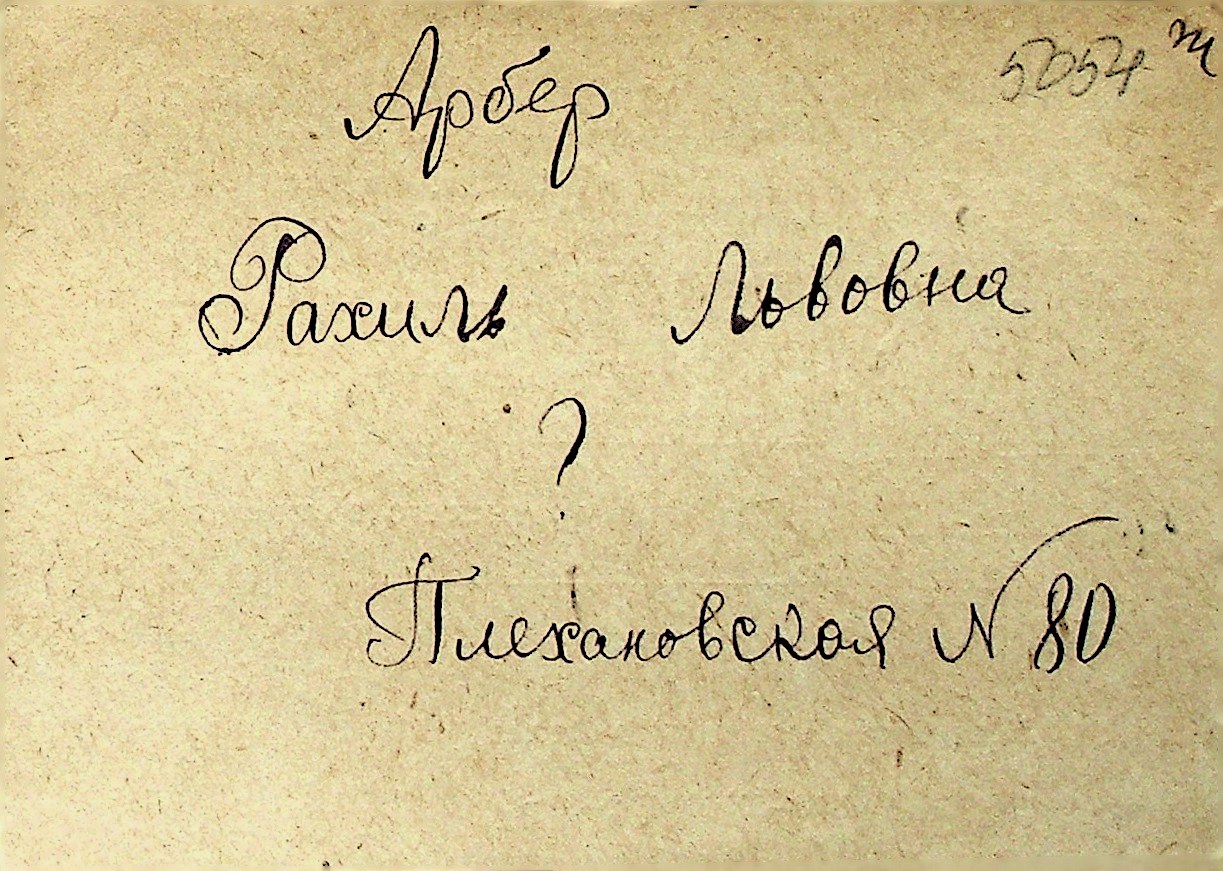 5054 ж
Арбер
Рахиль Львовна
?
Плехановская N 80